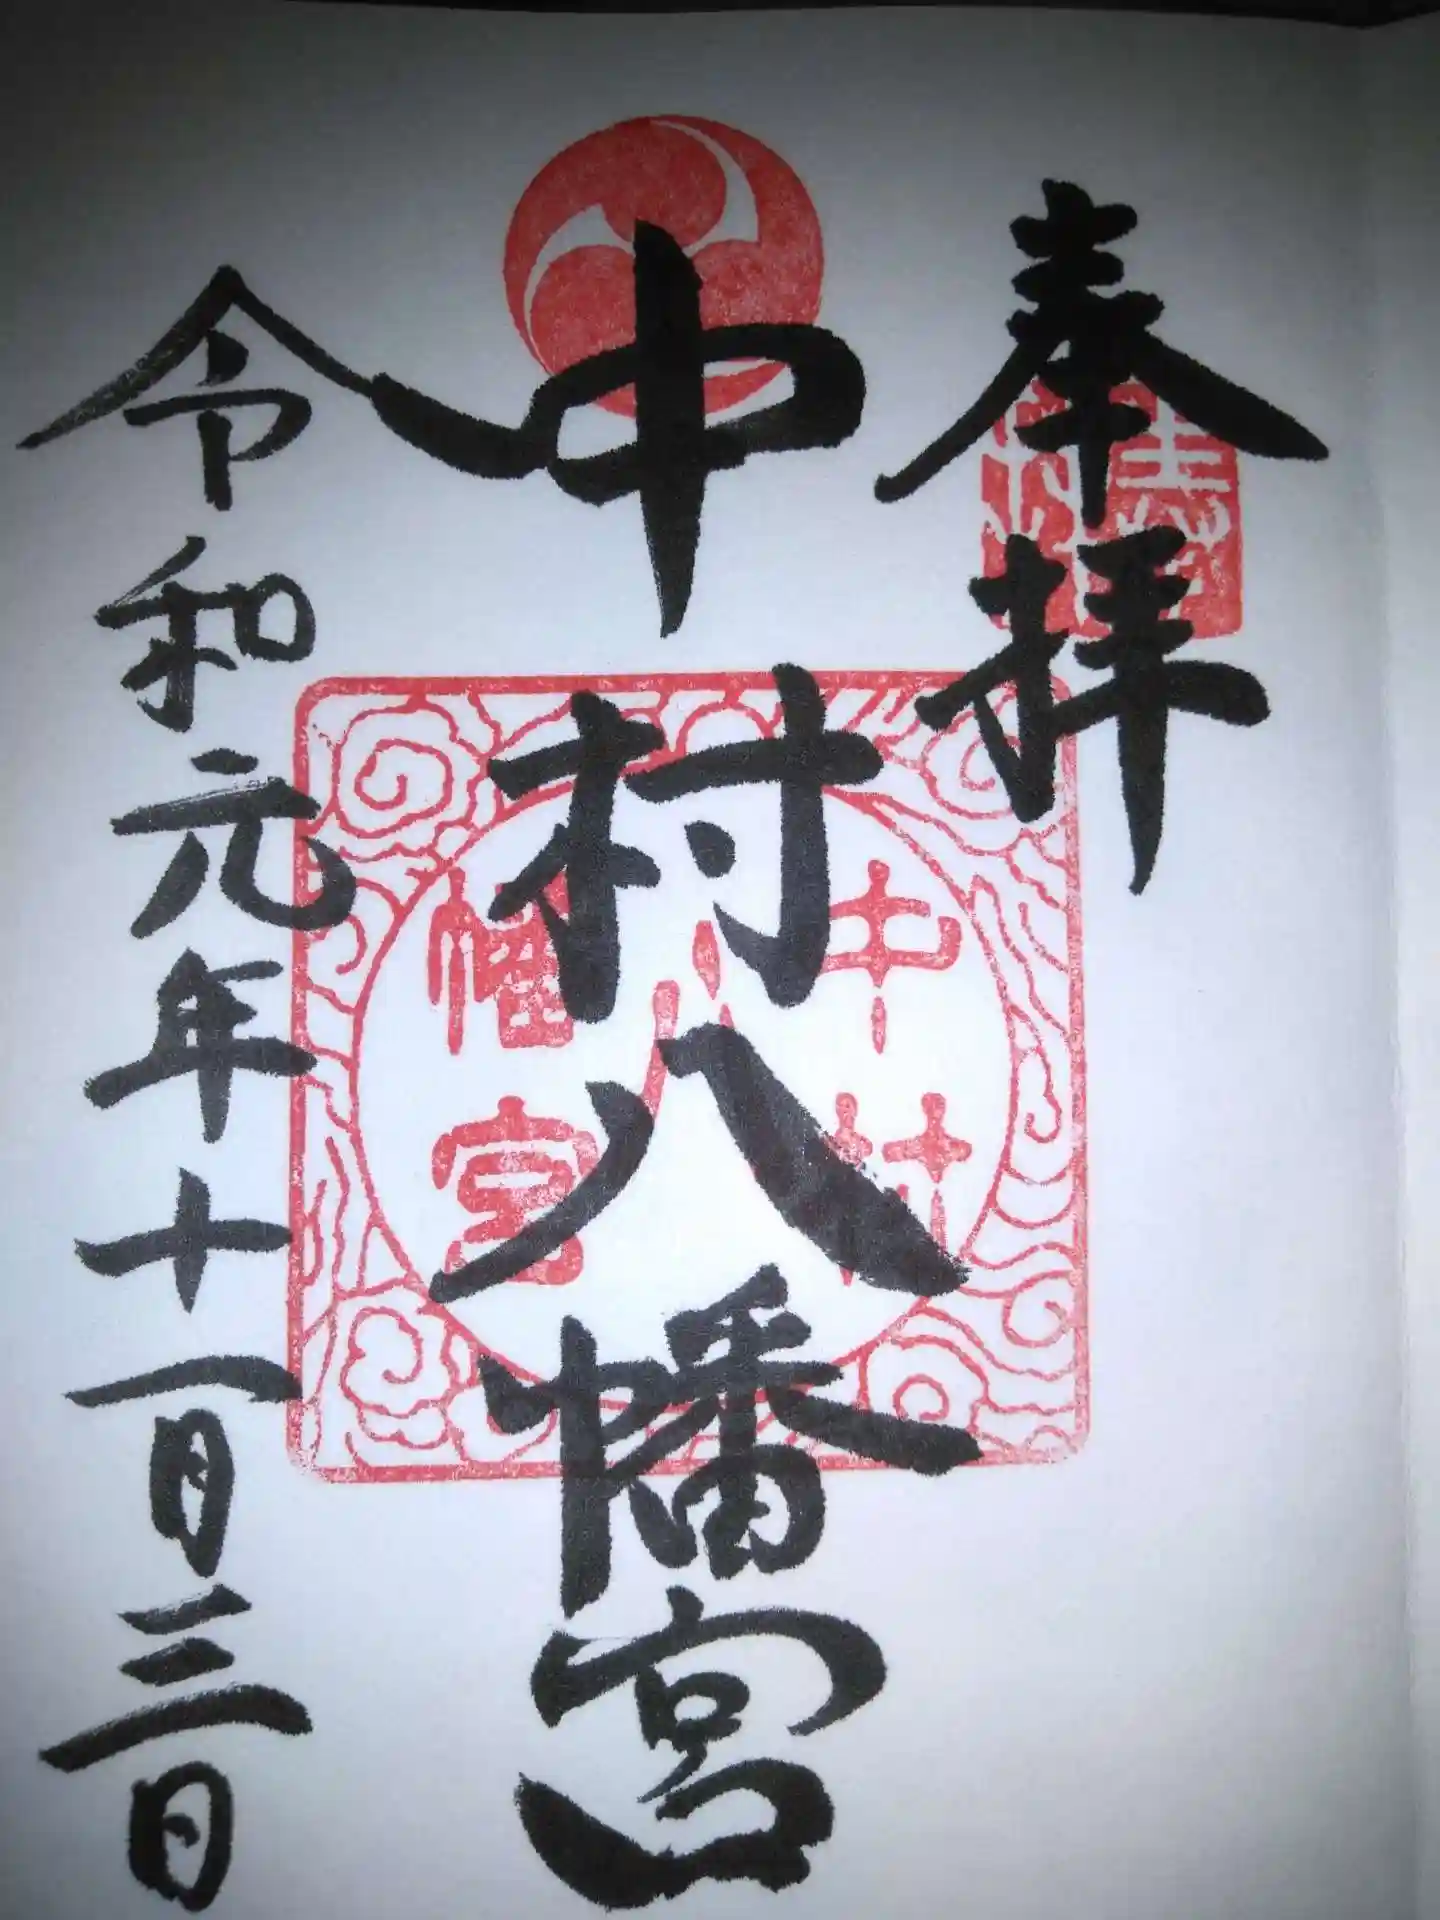 奉拝
中村八幡宮
中村
八
幡宮
令和元年十一月三日